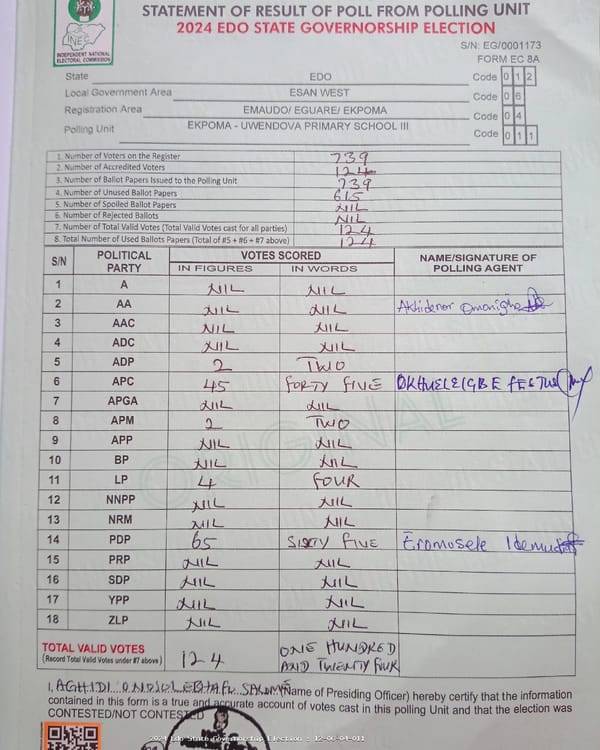 STATEMENT OF RESULT OF POLL FROM POLLING UNIT
2024 EDO STATE GOVERNORSHIP ELECTION
INEC
INDEPENDENT NATIONAL
ELECTORAL COMMISSION
S/N: EG/0001173
FORM EC 8A
State EDO Code 0 1 2
Local Government Area ESAN WEST Code 0 6
Registration Area EMAUDO/ EGUARE/ EKPOMA Code 0 4
Polling Unit EKPOMA - UWENDOVA PRIMARY SCHOOL III Code 0 1 1
1. Number of Voters on the Register 739
2. Number of Accredited Voters 124
3. Number of Ballot Papers Issued to the Polling Unit 739
4. Number of Unused Ballot Papers 615
5. Number of Spoiled Ballot Papers NIL
6. Number of Rejected Ballots NIL
7. Number of Total Valid Votes (Total Valid Votes cast for all parties) 124
8. Total Number of Used Ballots Papers (Total of #5 + #6 + #7 above) 124
S/N POLITICAL PARTY VOTES SCORED NAME/SIGNATURE OF POLLING AGENT
IN FIGURES IN WORDS
1 A NIL NIL
2 AA NIL NIL
3 AAC NIL NIL
4 ADC NIL NIL
5 ADP 2 TWO
6 APC 45 FORTY FIVE
7 APGA NIL NIL
8 APM 2 TWO
9 APP NIL NIL
10 BP NIL NIL
11 LP 4 FOUR
12 NNPP NIL NIL
13 NRM NIL NIL
14 PDP 65 SIXTY FIVE Eromosele
15 PRP NIL NIL
16 SDP NIL NIL
17 YPP NIL NIL
18 ZLP NIL NIL
ORIGINAL
TOTAL VALID VOTES 124 ONE HUNDRED
(Record Total Valid Votes under #7 above) AND TWENTY FOUR
I, AGHIDI (Name of Presiding Officer) hereby certify that the information
contained in this form is a true and accurate account of votes cast in this polling Unit and that the election was
CONTESTED/NOT CONTESTED
2024 Edo State Governorship Election : 12-06-04-011